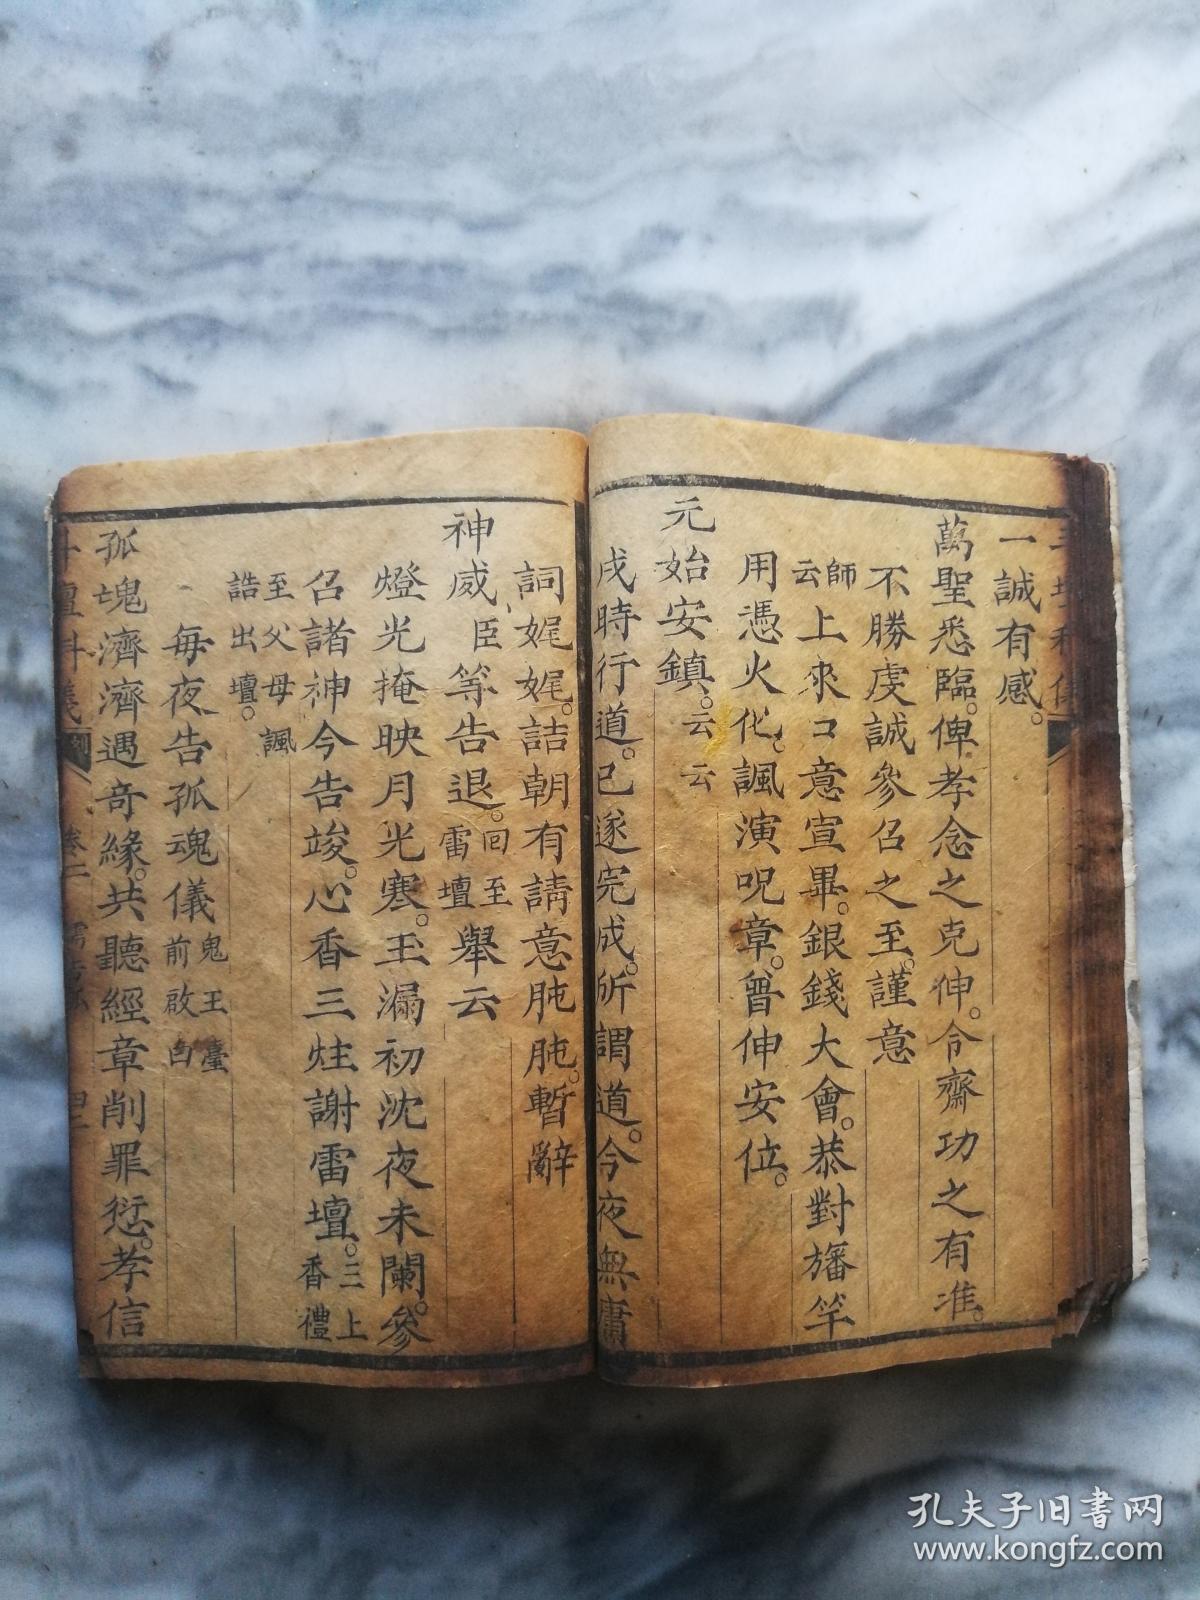 一誠有感。
萬聖悉臨。俾孝念之克伸。令齋功之有准。
不勝虔誠參召之至。謹意
師云上來コ意宣畢。銀錢大會。恭對旛竿
用憑火化。諷演呪章。曾伸安位。
元始安鎮。云云
戌時行道。已遂完成。所謂道。今夜無庸
詞娓娓。詰朝有請意肫肫。暫辭
神威、臣等告退。回至雷壇舉云
燈光掩映月光寒。玉漏初沈夜未闌。參
召諸神今告竣。心香三炷謝雷壇。三上香禮
至父母諷誥出壇。
每夜告孤魂儀鬼王臺前啟白
孤魂濟濟遇奇緣。共聽經章削罪愆。孝信
卷二
孔夫子旧书网
www.kongfz.com